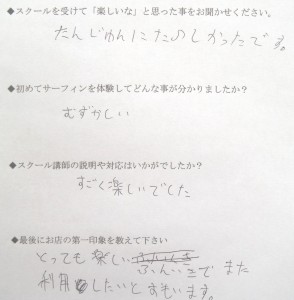 ◆スクールを受けて「楽しいな」と思った事をお聞かせください。
たんじゅんにたのしかったです。
◆初めてサーフィンを体験してどんな事が分かりましたか?
むずかしい
◆スクール講師の説明や対応はいかがでしたか?
すごく楽しいでした
◆最後にお店の第一印象を教えて下さい
とっても楽しいふんいきでまた
利用したいとおもいます。